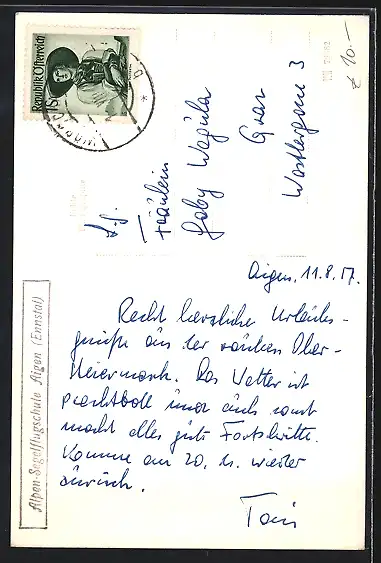 Republik Österreich
1S
€ 10.-
Fräulein
Gaby Wagula
Graz
3
Alpen-Segelflugschule Aigen (Ennstal)
Aigen, 11.8.57.
Recht herzliche Urlaubs-
grüße aus der schönen Ober-
steiermark. Das Wetter ist
prachtvoll und auch sonst
macht alles gute Fortschritte.
Komme am 20. wieder
zurück.
Toni